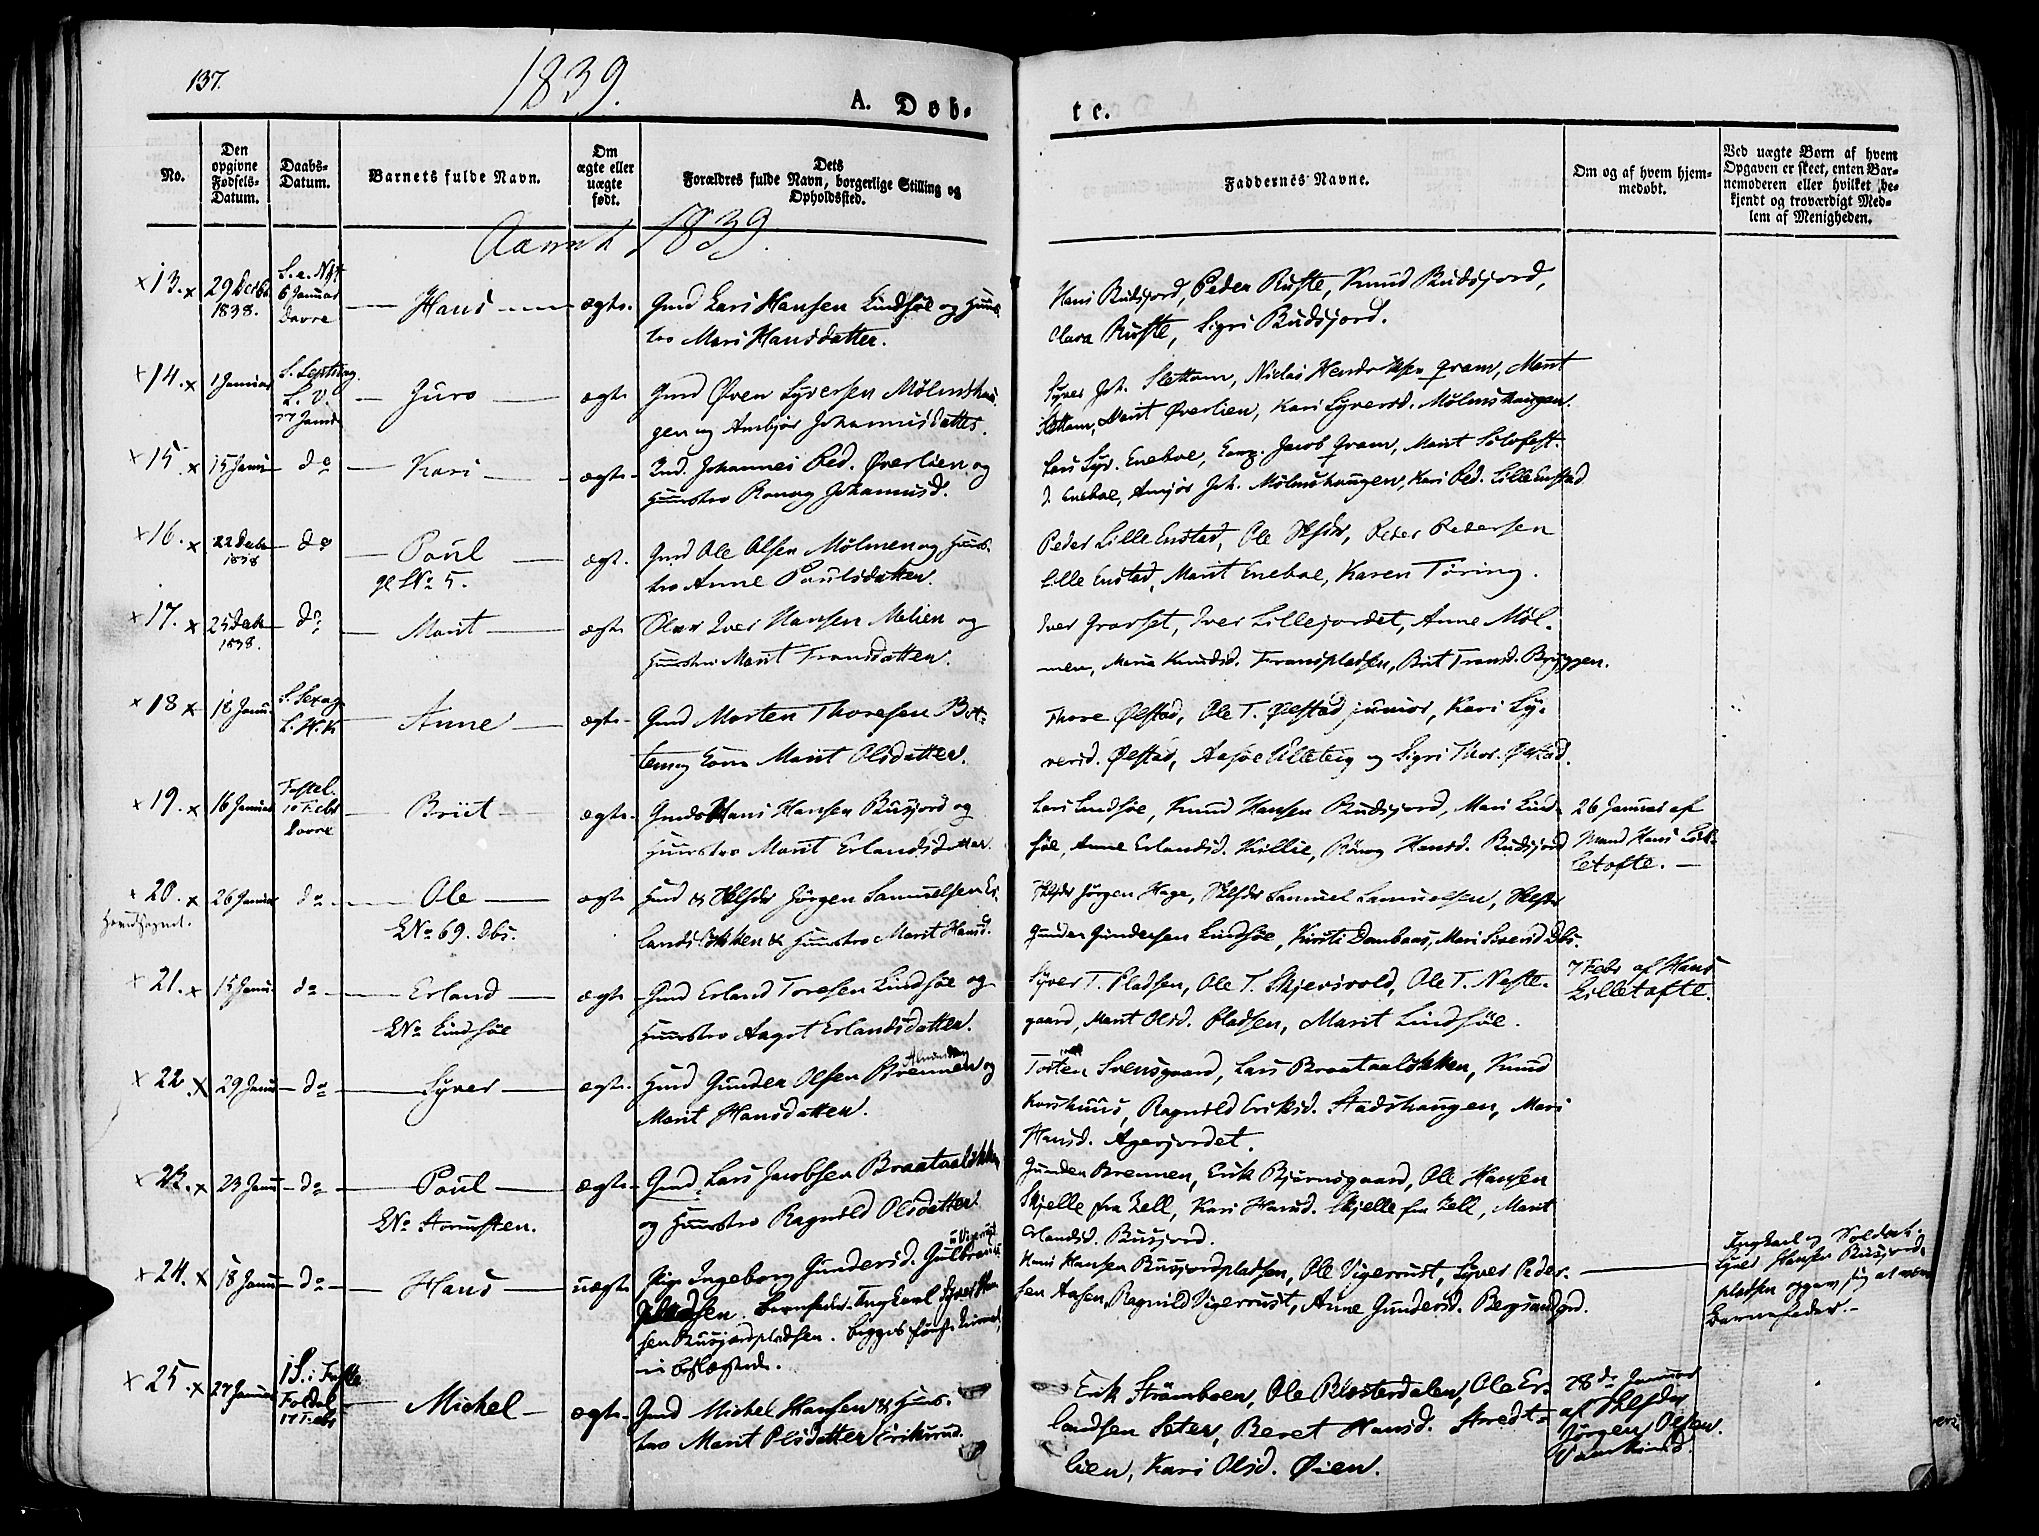 137.
1839.
A. Døb-
te.
No.
Den opgivne Fødsels-Datum.
Daabs-Datum.
Barnets fulde Navn.
Om ægte eller uægte født.
Dets Forældres fulde Navn, borgerlige Stilling og Opholdssted.
Faddernes Navne.
Om og af hvem hjem-medøbt.
Ved uægte Børn af hvem Opgaven er skeet, enten Bar-nemoderen eller hvilket be-kjendt og troværdigt Med-lem af Menigheden.
Aaret 1839.
13. 29 Decbr 1838. S. e. Nyt. 6 Januar Dovre Hans ægte. Gmd Lars Hansen Lindsøe og Huus-
tro Mari Hansdatter.
Hans Budsjord, Peder Ruste, Knud Budsjord,
Clara Ruste, Sigri Budsjord.
14. 1 Januar S. Septuag. L. V. 27 Janu Guro ægte Gmd Øven Syversen Mølmshau-
gen og Ambjør Johannusdatter.
Syver Joh. Slettom, Niclas Hendriksen Gram, Marit
Slettom, Marit Øverlien, Kari Syversd. Mølmshaugen.
15. 15 Janu do Kari ægte Ind. Johannes Ped. Øverlien og
Huustro Ronog Johannusd.
Lars Syv. Eneboe, Corp. Jacob Gram, Marit Solofest.
d. Eneboe, Amjør Joh. Mølmshaugen, Kari Ped. Lille Enstad
16. 22 Decbr 1838 do Poul No 5. ægt. Gmd Ole Olsen Mølmen og Huus-
tro Anne Poulsdatter.
Peder Lille Enstad, Ole Peder Pedersen
Lille Enstad, Marit Eneboe, Karen Toring.
17. 25 Decbr 1838. do Marit ægte Iver Hansen Melien og
Huustru Marit Transdatter.
Iver Gravset, Iver Lillejordet, Anne Møl-
men, Maria Knudsd. Transpladsen, Brit Transd. Bryggen.
18 18 Janu. S. Sexag. L. H. K Anne ægte Gmd Morten Thoresen Bot-
ten og Kone Marit Olsdatter.
Thore Ølstad, Ole T. Ølstad junior, Kari Sy-
versd. Ølstad, og Sigri Thor. Ølstad.
19. 16 Januar Fastel. 10 Febr Dovre Briit ægte Gmd Hans Hansen Busjord og
Huustro Marit Erlandsdatter.
Lars Lindsøe, Knud Hansen Budsjord, Mari Lind-
søe, Anne Erlandsd. Killie, Rønog Hansd. Budsjord
26 Januar af
Mand Hans Lil-
letofte.
20. 26 Januar do Ole No 69. Dbs. ægte Jørgen Samuelsen Er-
landsløkken & Huustro Marit Hansd.
Jørgen Hage, Samuel Samuelsen,
Gunder Gundersen Lindsøe, Kirsti Dombaas, Mari Siversd Dbs.
21. 15 Janu. do Erland Lindsøe ægte Gmd Erland Toresen Lindsøe og
Huustro Aagot Erlandsdatter.
Syver T. Pladsen, Ole T. Skjevsvold, Ole T. Neste-
gaard, Marit Olsd. Pladsen, Marit Lindsøe.
7 Febr af Hans
Lilletofte.
22. 29 Janu do Syver ægte. Gunder Olsen Brennen og
Marit Hansdatter.
Tosten Svensgaard, Lars Braataaløkken, Knud
Korshuus, Ragnild Eriksd. Stadshaugen, Mari
Hansd. Agerjordet.
23. 23 Janu do Poul ægte Gmd. Lars Jacobsen Braataaløkken
og Huustro Ragnild Olsdatter.
Gunder Brennen, Erik Bjørnsgaard, Ole Hansen
Skjelle fra Lell, Kari Hansd. Skjelle fra Lell, Marit
Erlandsd. Busjord.
24. 18 Janu do Hans uægte Pige Ingeborg Gundersd. Gulbrands-
pladsen. Barnefader Ungkarl Syver Han-
sen Busjordpladsen. begges første Leiermaal,
ei beslægtede.
Hans Hansen Busjordpladsen, Ole Vigerrust, Syver Peder-
sen Aasen, Ragnild Vigerrust, Anne Gundersd. Bergsund
Ungkarl og Soldat
Syver Hansen Busjord-
pladsen opgav sig at være
Barnefader.
25. 27 Januar 1 S. i Faste Foldal 17 Febr Michel ægte Gmd Michel Hansen & Huus-
tro Marit Olsdatter Eriksrud.
Erik Strømboen, Ole Blesterdalen, Ole Er-
landsen Seter, Beret Hansd. Stredt-
lien, Kari Olsd. Øien.
28 de Januar
af
Jørgen Olsen